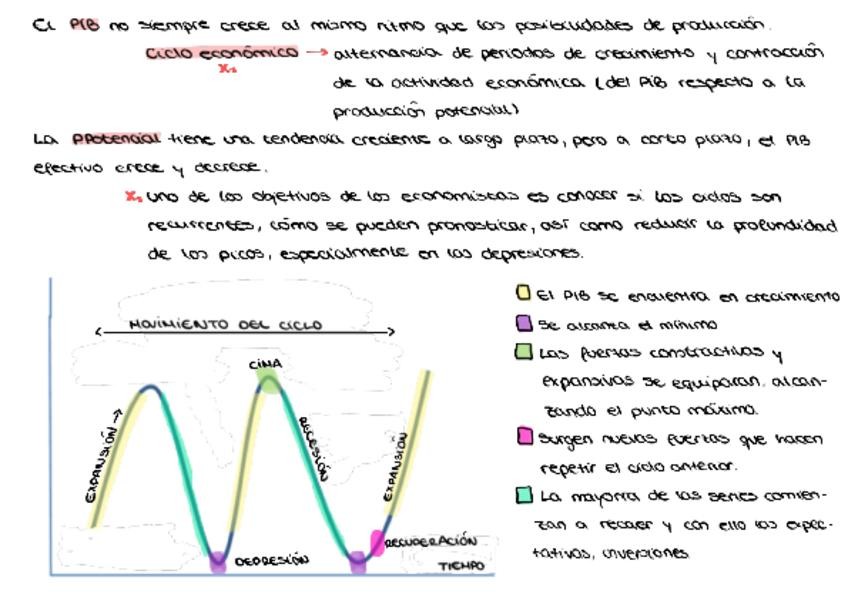 El PIB no siempre crece al mismo ritmo que las posibilidades de producción.
Ciclo económico → alternancia de periodos de crecimiento y contracción
x₁
de la actividad económica (del PIB respecto a la
producción potencial)
La PPotencial tiene una tendencia creciente a largo plazo, pero a corto plazo, el PIB
efectivo crece y decrece.
x₁ uno de los objetivos de los economistas es conocer si los ciclos son
recurrentes, cómo se pueden pronosticar, así como reducir la profundidad
de los picos, especialmente en las depresiones.
MOVIMIENTO DEL CICLO
CIMA
EXPANSIÓN →
RECESIÓN
EXPANSIÓN
DEPRESIÓN
RECUPERACIÓN
TIEMPO
El PIB se encuentra en crecimiento
Se alcanza el mínimo
Las fuerzas constractivas y
expansivas se equiparan, alcan-
zando el punto máximo.
Surgen nuevas fuerzas que hacen
repetir el ciclo anterior.
La mayoría de las series comien-
zan a recaer y con ello las expec-
tativas, inversiones